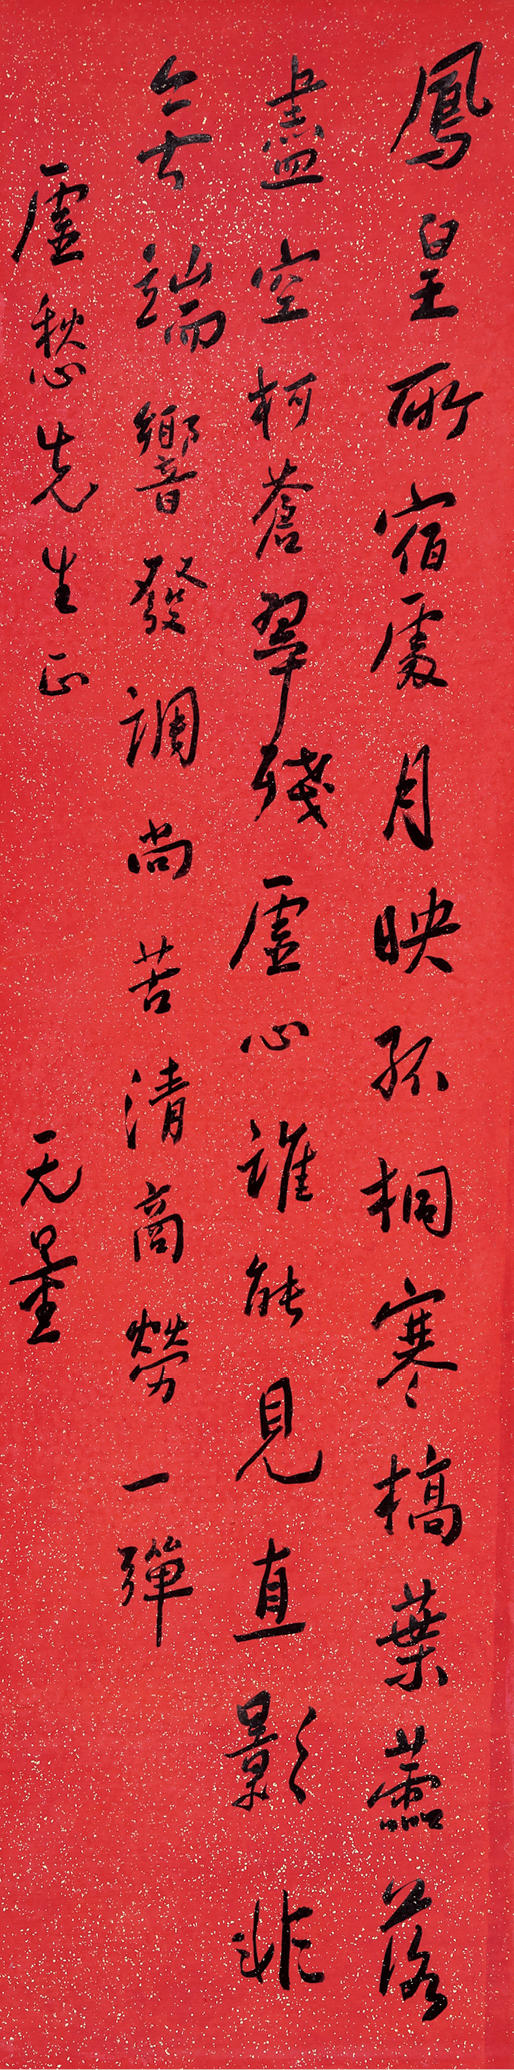 鳳皇所宿處月映孤桐寒槁葉蕭落
盡空柯蒼翠殘虛心誰能見直影非
無端響發調尚苦清商勞一彈
虛愁先生正
无量